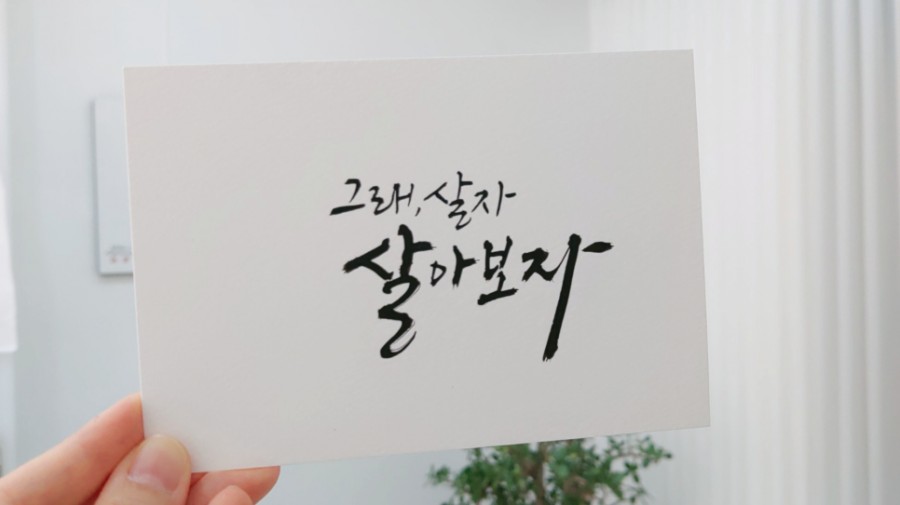 그래, 살자
살아보자